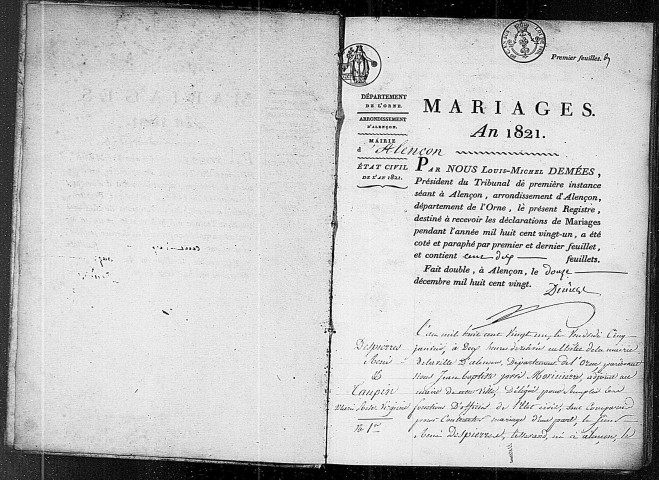 Premier feuillet.
DÉPARTEMENT
DE L'ORNE.
ARRONDISSEMENT
D'ALENÇON.
MAIRIE
d'Alençon
ÉTAT CIVIL
DE L'AN 1821.
MARIAGES.
An 1821.
PAR NOUS LOUIS-MICHEL DEMÉES,
Président du Tribunal de première instance
séant à Alençon, arrondissement d'Alençon,
département de l'Orne, le présent Registre,
destiné à recevoir les déclarations de Mariages
pendant l'année mil huit cent vingt-un, a été
coté et paraphé par premier et dernier feuillet,
et contient cent dix feuillets.
Fait double, à Alençon, le douze
décembre mil huit cent vingt.
Demées
Despierres
René
&
Taupin
Marie
N. 1er
L'an mil huit cent vingt un, le Vendredi Cinq
janvier, à Deux heures du soir en l'hôtel de la mairie
de la ville d'alençon, Département de l'Orne pardevant
Nous Jean Baptiste adjoint au
maire de cette Ville, Délégué pour remplir les
fonctions D'officier de l'Etat civil, Sont Comparus
pour Contracter mariage D'une part, le Sieur
René Despierres, tisserand, né à alençon, le